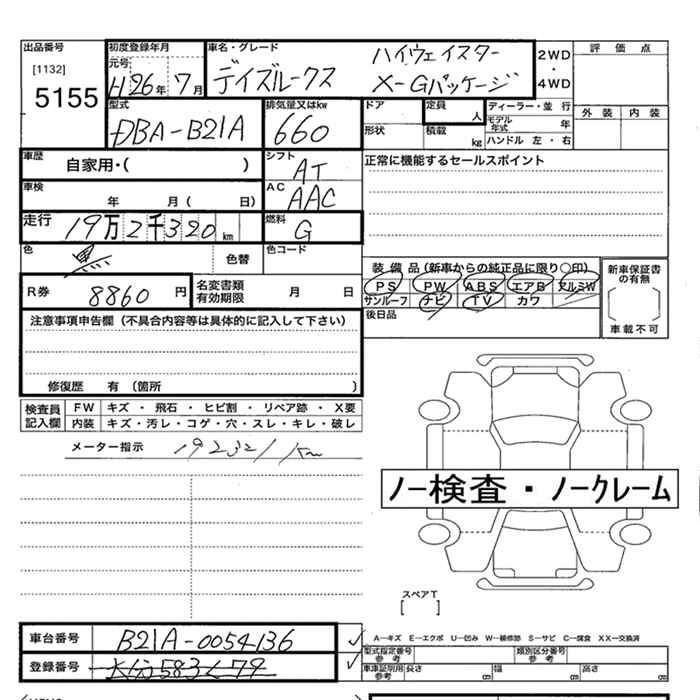 出品番号 初度登録年月 車名・グレード ハイウェイスター 2WD 評価点
[1132] 元号 H26年7月 デイズルークス X-Gパッケージ ・ 4WD
5155 型式 排気量又はkw ドア 定員 人 ディーラー・並行 外装 内装
DBA-B21A 660 形状 積載 kg モデル年式 年
ハンドル 左・右
車歴 自家用・( ) シフト AT 正常に機能するセールスポイント
車検 年 月( 日) AC AAC
走行 19万2千320km 燃料 G
色 黒 色替 色コード
装備品(新車からの純正品に限り○印) 新車保証書の有無
R券 8860円 名変書類有効期限 月 日 PS PW ABS エアB アルミW
サンルーフ ナビ TV カワ
後日品 車載不可
注意事項申告欄(不具合内容等は具体的に記入して下さい)
修復歴 有(箇所 )
検査員記入欄 FW キズ・飛石・ヒビ割・リペア跡・X要
内装 キズ・汚レ・コゲ・穴・スレ・キレ・破レ
メーター指示 192321km
ノー検査・ノークレーム
スペアT
[ ]
車台番号 B21A-0054136
A-キズ E-エクボ U-凹み W-補修跡 S-サビ C-腐食 XX-交換済
登録番号
型式指定番号 参考 類別区分番号 参考
車庫証明用 参考 長さ cm 幅 cm 高さ cm